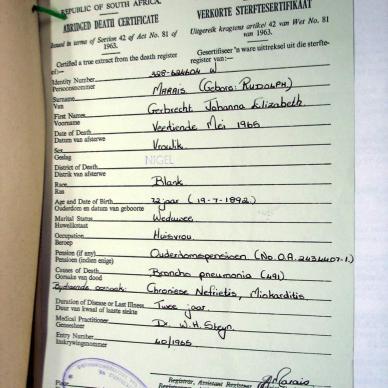 REPUBLIC OF SOUTH AFRICA.
ABRIDGED DEATH CERTIFICATE
VERKORTE STERFTESERTIFIKAAT
Issued in terms of Section 42 of Act No. 81 of 1963.
Uitgereik kragtens artikel 42 van Wet No. 81 van 1963.
Certified a true extract from the death register of:—
Gesertifiseer 'n ware uittreksel uit die sterfteregister van:—
Identity Number
Persoonsnommer
W
Surname
Van
MARAIS (Gebore: RUDOLPH)
First Names
Voorname
Gerbrecht Johanna Elizabeth
Date of Death
Datum van afsterwe
Veertiende Mei 1965
Sex
Geslag
Vroulik
District of Death
Distrik van afsterwe
NIGEL
Race
Ras
Blank
Age and Date of Birth
Ouderdom en datum van geboorte
72 jaar (19-7-1892)
Marital Status
Huwelikstaat
Weduwee
Occupation
Beroep
Huisvrou
Pension (if any)
Pensioen (indien enige)
Ouderdomspensioen (No. O.A. 2434407-1.)
Causes of Death
Oorsake van dood
Broncho pneumonia (491)
Bydraende oorsaak: Chroniese Nefritis, Miokarditis
Duration of Disease or Last Illness
Duur van kwaal of laaste siekte
Twee jaar
Medical Practitioner
Geneesheer
Dr. W.H. Steyn
Entry Number
Inskrywingsnommer
60/1965
Place
Registrar, Assistant Registrar